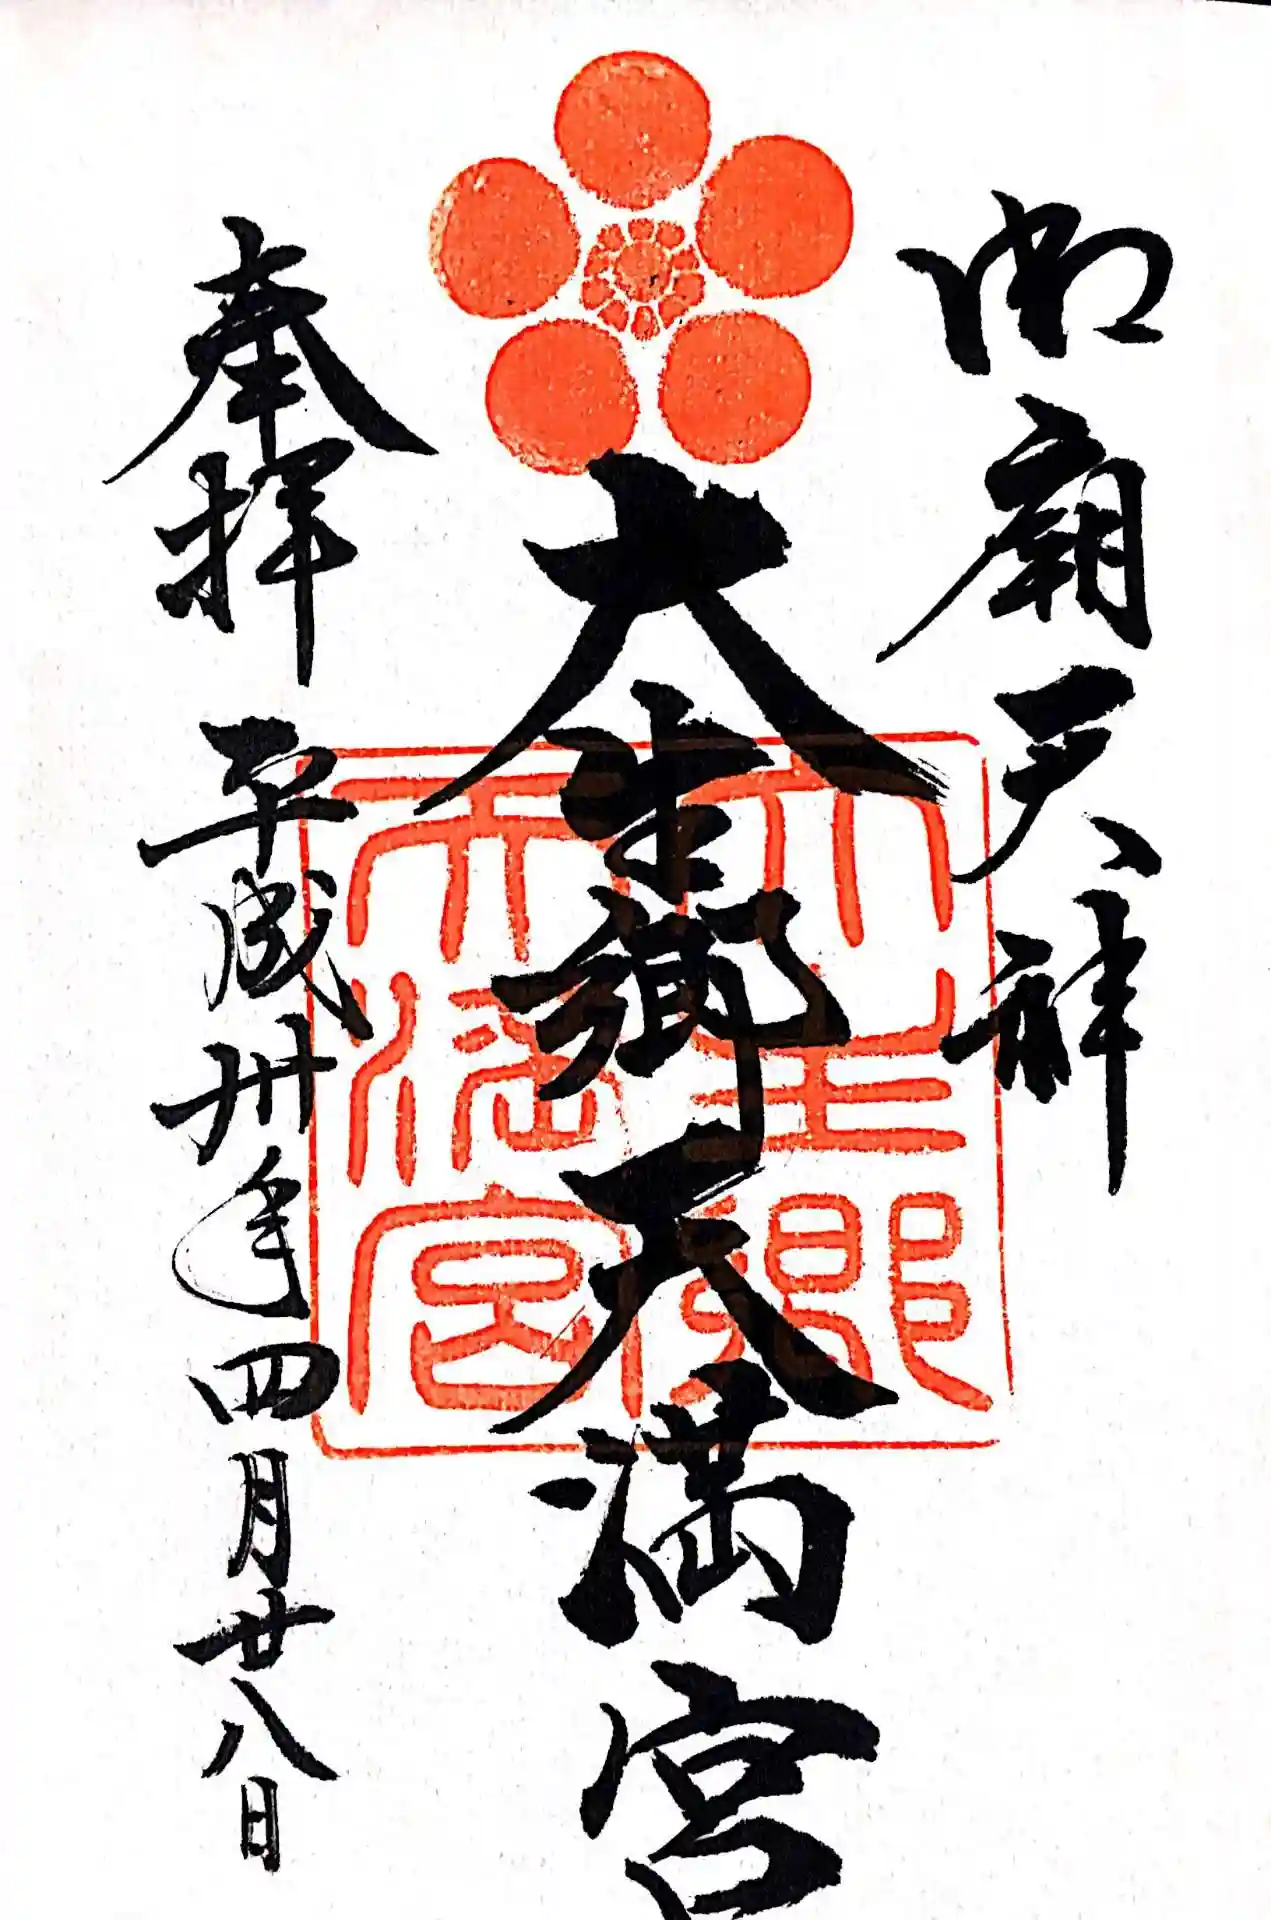 御廟天神
大生郷天満宮
奉拝 平成卅年四月廿八日
大生郷
天満宮